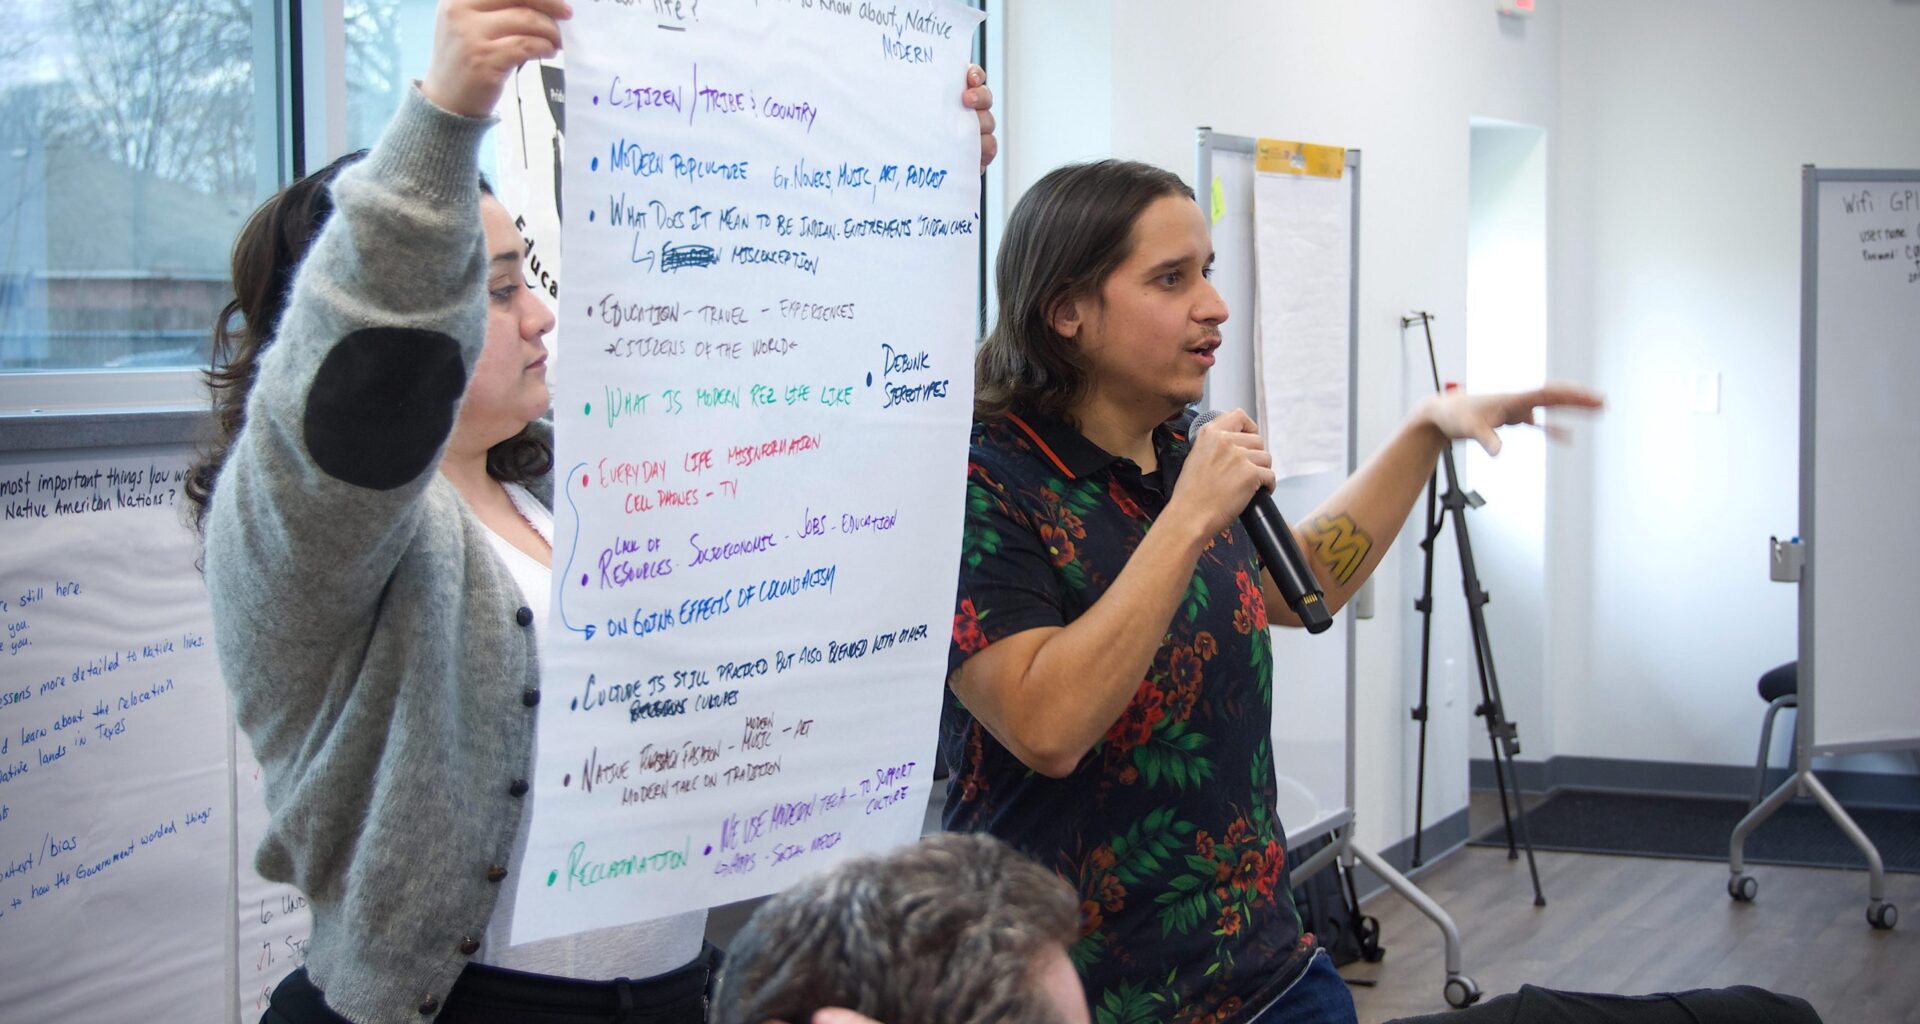 life?
to know about, Native
MODERN
• CITIZEN / TRIBE & COUNTRY
• MODERN POPCULTURE Gr. NOVELS, MUSIC, ART, PODCAST
• WHAT DOES IT MEAN TO BE INDIAN - ENTITLEMENTS "INDIAN CHECK"
MISCONCEPTION
• EDUCATION - TRAVEL - EXPERIENCES
→CITIZENS OF THE WORLD←
• WHAT IS MODERN REZ LIFE LIKE
• DEBUNK
STEREOTYPES
• EVERYDAY LIFE MISINFORMATION
CELL PHONES - TV
LACK OF
• RESOURCES - SOCIOECONOMIC - JOBS - EDUCATION
ON GOING EFFECTS OF COLONIALISM
• CULTURE IS STILL PRACTICED BUT ALSO BLENDED WITH OTHER
CULTURES
• NATIVE FASHION - MODERN MUSIC - ART
MODERN TAKE ON TRADITION
• RECLAMATION
• WE USE MODERN TECH - TO SUPPORT
CULTURE
- SOCIAL MEDIA
Educa
most important things you
Native American Nations?
still here.
you.
you.
more detailed to Native lives.
learn about the relocation
lands in Texas
/bias
how the Government worded things
6.
7.
Wifi GPI
user name:
Password: